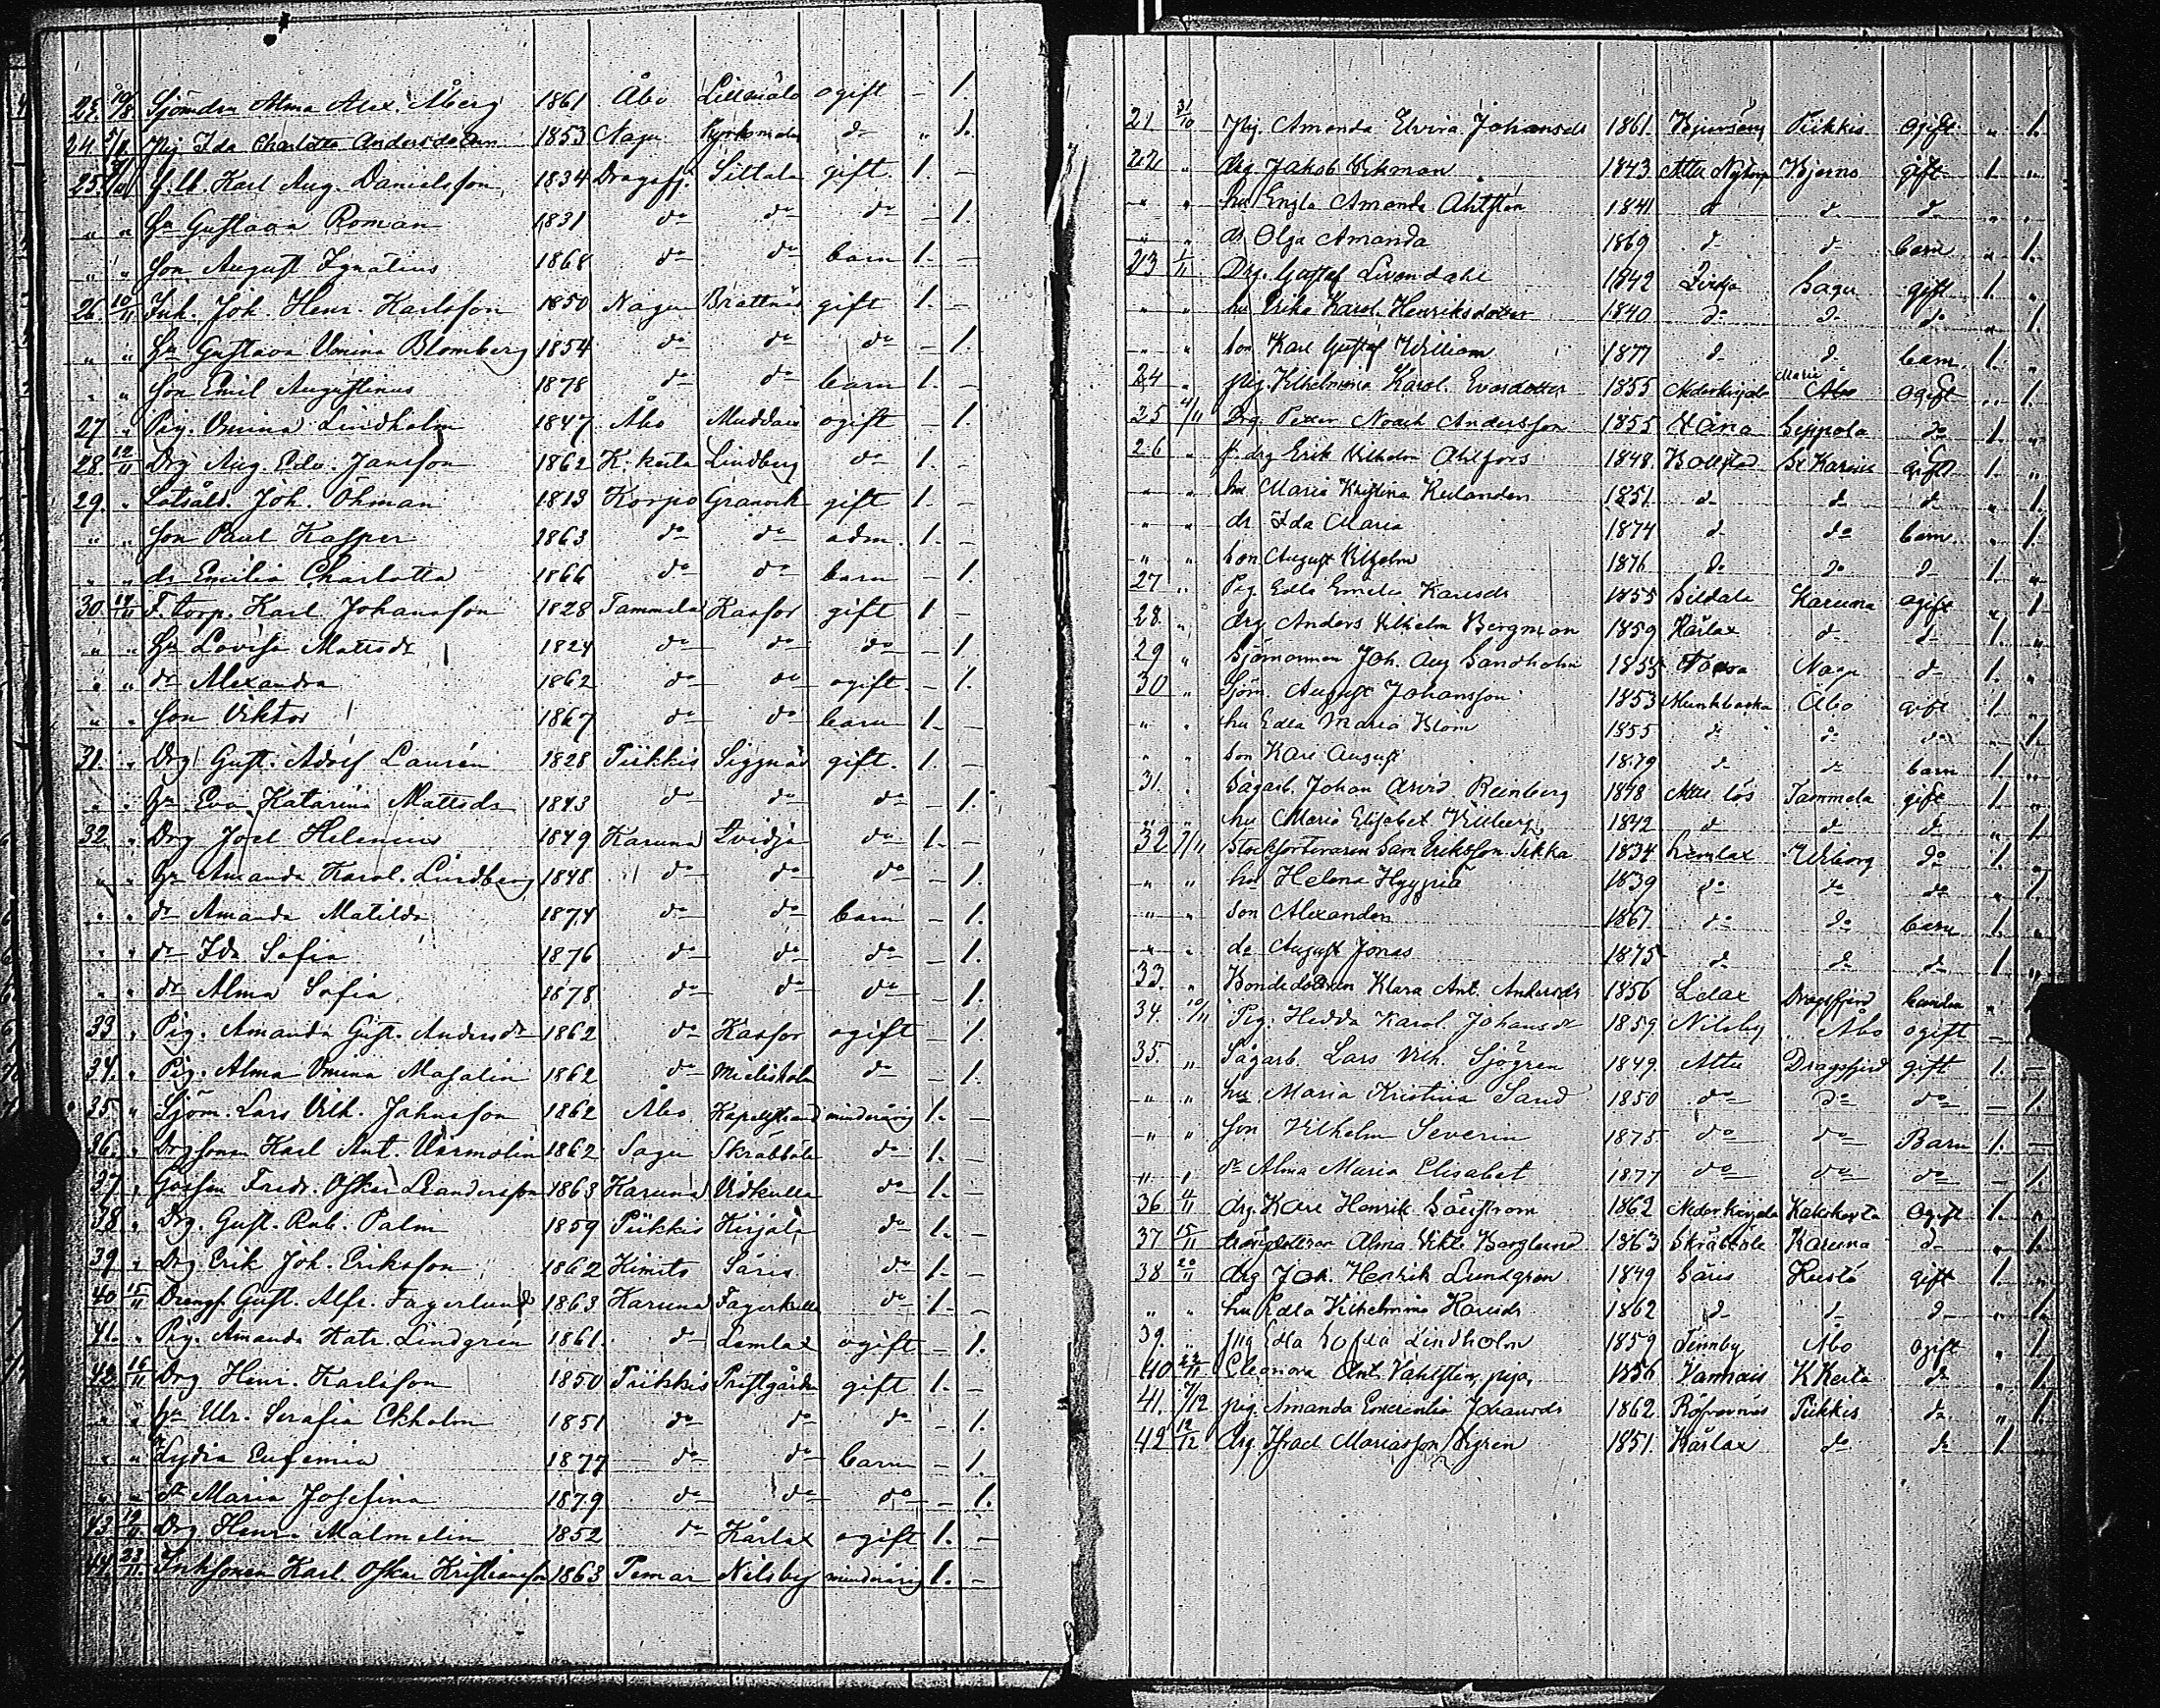 23. 19/8 Sjömdn Alma Alex. Åberg 1861 Åbo Lillmälö ogift – 1.
24. Pig Ida Charlotta Andersdottern 1853 Nagu Kyrkomalm do „ 1.
25. Karl Aug. Danielsson 1834 Dragsfj. Sillala gift 1. –
„ „ Hu Gustava Roman 1831 do do do – 1.
„ „ Son August Ignatius 1868 do do barn 1. –
26. 10/11 Inh. Joh. Henr. Karlsson 1850 Nagu Brattnäs gift 1. –
„ „ Hu Gustava Vmina Blomberg 1854 do do do – 1.
„ „ Son Emil Augustinus 1878 do do barn 1. –
27 „ Pig. Vmina Lindholm 1847 Åbo Muddais ogift – 1.
28. 12/11 Drg Aug. Edv. Jansson 1862 K. kerta Lindberg do 1. –
29. „ Lotsåld. Joh. Öhman 1813 Korpo Granvik gift 1. –
„ „ Son Paul Kasper 1863 do do adm. 1. –
„ „ dr Emilia Charlotta 1866 do do barn – 1.
30. 14/11 F. torp. Karl Johansson 1828 Tammela Kasfor gift 1 –
„ „ Hu Lovisa Mattsdr 1824 do do do – 1
„ „ dr Alexandra 1862 do do ogift – 1.
„ „ Son Viktor 1867 do do barn 1. –
31. „ Drg Gust. Adolf Laurén 1828 Piikkis Siggnäs gift. 1. –
„ „ Hu Eva Katarina Mattsdr 1843 do do do – 1.
32. „ Drg Joel Helenius 1849 Karuna Svidja do 1. –
„ „ Hu Amanda Karol. Lindberg 1848 do do do – 1.
„ „ dr Amanda Matilda 1874 do do barn – 1.
„ „ dr Ida Sofia 1876 do do do – 1.
„ „ dr Alma Sofia 1878 do do do – 1.
33 „ Pig. Amanda Gust. Andersdr 1862 do Kasfor ogift – 1.
34. „ Pig. Alma Vmina Masalin 1862 do Mielisholm do – 1.
35 „ Sjöm. Lars Vilh. Johnsson 1862 Åbo Kapellstrand minderårig 1. –
36. „ Drgsonen Karl Ant. Värmolin 1862 Sagu Skräbböle do 1. –
37 „ Gossen Fredr. Oskar Leandersson 1863 Karuna Vidkulla do 1. –
38 „ Drg. Gust. Rub. Palm 1859 Piikkis Kirjala do 1. –
39 „ Drg Erik Joh. Eriksson 1862 Kimito Säris do 1. –
40 15/11 Drengs. Gust. Alfr. Fagerlund 1863 Karuna Fagerkulla do 1. –
41. „ Pig. Amanda Katr. Lindgren 1861. do Lemlax ogift – 1.
42 16/11 Drg Henr. Karlsson 1850 Piikkis Prestgården gift 1. –
„ „ Hu Ulr. Serafia Ekholm 1851 do do do – 1.
„ „ dr Lydia Eufemia 1877 do do barn – 1.
„ „ dr Maria Josefina 1879 do do do – 1.
43 19/11 Drg Henr. Malmelin 1852 do Kårlax ogift 1. –
44. 23/11. Inhsonen Karl Oskar Kristiansson 1863 Pemar Nilsby minderårig 1. –
21 31/10 Pig. Amanda Elvira Johansdr 1861 Piikkis ogift „ 1.
22 „ drg. Jakob Ekman 1843 Attu Nytorp Kjimo gift 1. „
„ „ hu Engla Amanda Ahlsten 1841 d d d „ „
„ „ dr Olga Amanda 1869 d d barn „ 1.
23 1/11 Drg. Gustaf Livendahl 1842 Sagu gift 1. „
„ „ hu Erika Karol. Henriksdotter 1840 do d do „ 1.
„ „ son Karl Gustaf William 1877 d d barn 1. „
24 „ pig. Vilhelmina Karol. Evasdotter 1855 Nederkirjala Maria Åbo ogift „ 1.
25 4/11 Drg. Petter Noach Andersson 1855 Seppola do 1. „
26 „ f. drg Erik Vilhelm Ahlfors 1848. Bollstad St Karins gift 1. „
„ „ hu Maria Kristina Relander 1851. d d d „ 1.
„ „ dr Ida Maria 1874 d do barn „ 1.
„ „ son August Vilhelm 1876 do do d 1. „
27 „ Pig. Edla Emilia Karlsdr 1855 Sildala Karuna ogift „ 1
28. „ drg Anders Vilhelm Bergman 1859 Kårlax d d 1. „
29 „ Sjömannen Joh. Aug Sandholm 1855 Nagu d 1. „
30 „ Sjöm. August Johansson 1853 Munkbacka Åbo gift 1. „
„ „ hu Edla Maria Blom 1855 do do do „ 1.
„ „ son Karl August 1879 d do barn 1 „
31. „ Sågarb. Johan Arvid Reinberg 1848 Attu lös Tammela gift 1. „
„ „ hu Maria Elisabet Villberg 1842 d d d „ 1
32 7/11 Stockförteraren Sam Eriksson Sikka 1834 Lemlax Wiborg do 1. „
„ „ hu Helena Hyyppiä 1839 do do do „ 1.
„ „ son Alexander 1867 do do barn 1. „
„ „ do August Jonas 1875 d d d 1 „
33. „ Bondedottren Klara Ant. Andersdr 1856 Lelax Dragsfjerd „ 1
34. 10/11 Pig. Hedda Karol. Johansdr 1859 Nilsby Åbo ogift – 1.
35. „ Sågarb. Lars Vilh. Sjögren 1849. Attu Dragsfjerd gift 1. –
„ „ hu Maria Kristina Sand 1850 do do do – 1.
„ „ Son Vilhelm Severin 1875. do do Barn 1. –
„ „ dr Alma Maria Elisabet 1877 do do do – 1.
36 4/11 drg. Karl Henrik Säfström 1862 Nederkirjala Kakskerta ogift 1. „
37 15/11 Alma Vikt. Berglund 1863 Skräbböle Karuna d „ 1.
38 20/11 drg Joh. Henrik Lundgren 1849 Säris Kustö gift 1. „
„ „ hu Edla Vilhelmina Karlsdr 1862 d d d „ 1.
39. „ pig Edla Sofia Lindholm 1859 Tennby Åbo ogift „ 1.
40 Eleonora Ant. Vahlsten, piga, 1856 Vannais K Kerta do „ 1.
41. 7/12 pig. Amanda Emerentia Johansdr 1862 Röfvarnäs Piikkis do „ 1.
42 12/12 drg. Israel Mariasson Agren 1851. Kårlax do do 1. „